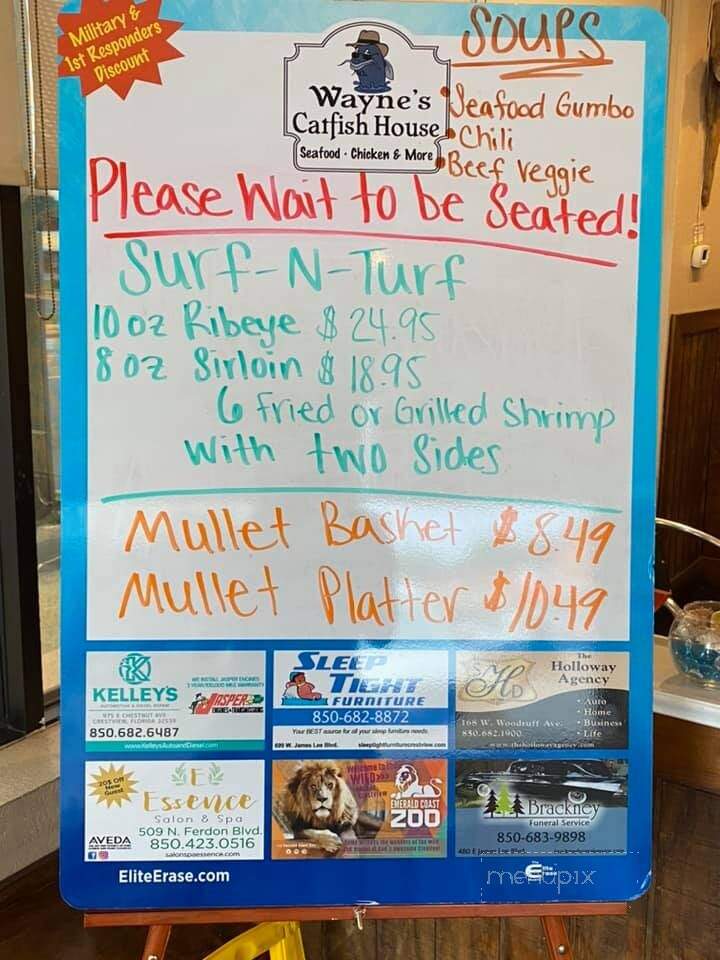 Military &
1st Responders
Discount
Wayne's
Catfish House
Seafood · Chicken & More
SOUPS
•Seafood Gumbo
•Chili
•Beef Veggie
Please Wait to be Seated!
Surf-N-Turf
10 oz Ribeye $24.95
8 oz Sirloin $18.95
6 Fried or Grilled Shrimp
With two Sides
Mullet Basket $8.49
Mullet Platter $10.49
KELLEY'S
AUTOMOTIVE & DIESEL REPAIR
975 E CHESTNUT AVE
CRESTVIEW, FLORIDA 32539
850.682.6487
www.KelleysAutoandDiesel.com
WE INSTALL JASPER ENGINES
3 YEAR/100,000 MILE WARRANTY
JASPER
SLEEP
TIGHT
FURNITURE
850-682-8872
Your BEST source for all your sleep furniture needs.
W. James Lee Blvd.
sleeptightfurniturecrestview.com
SHD
The
Holloway
Agency
• Auto
• Home
• Business
• Life
168 W. Woodruff Ave.
850.682.1900
www.thehollowayagency.com
20% Off
New
Guest
E
Essence
Salon & Spa
AVEDA
509 N. Ferdon Blvd.
850.423.0516
salonspaessence.com
Welcome to the
WILD
EMERALD COAST
ZOO
Brackney
Funeral Service
850-683-9898
480 E James Lee Blvd.
EliteErase.com
Elite
Erase
menupix